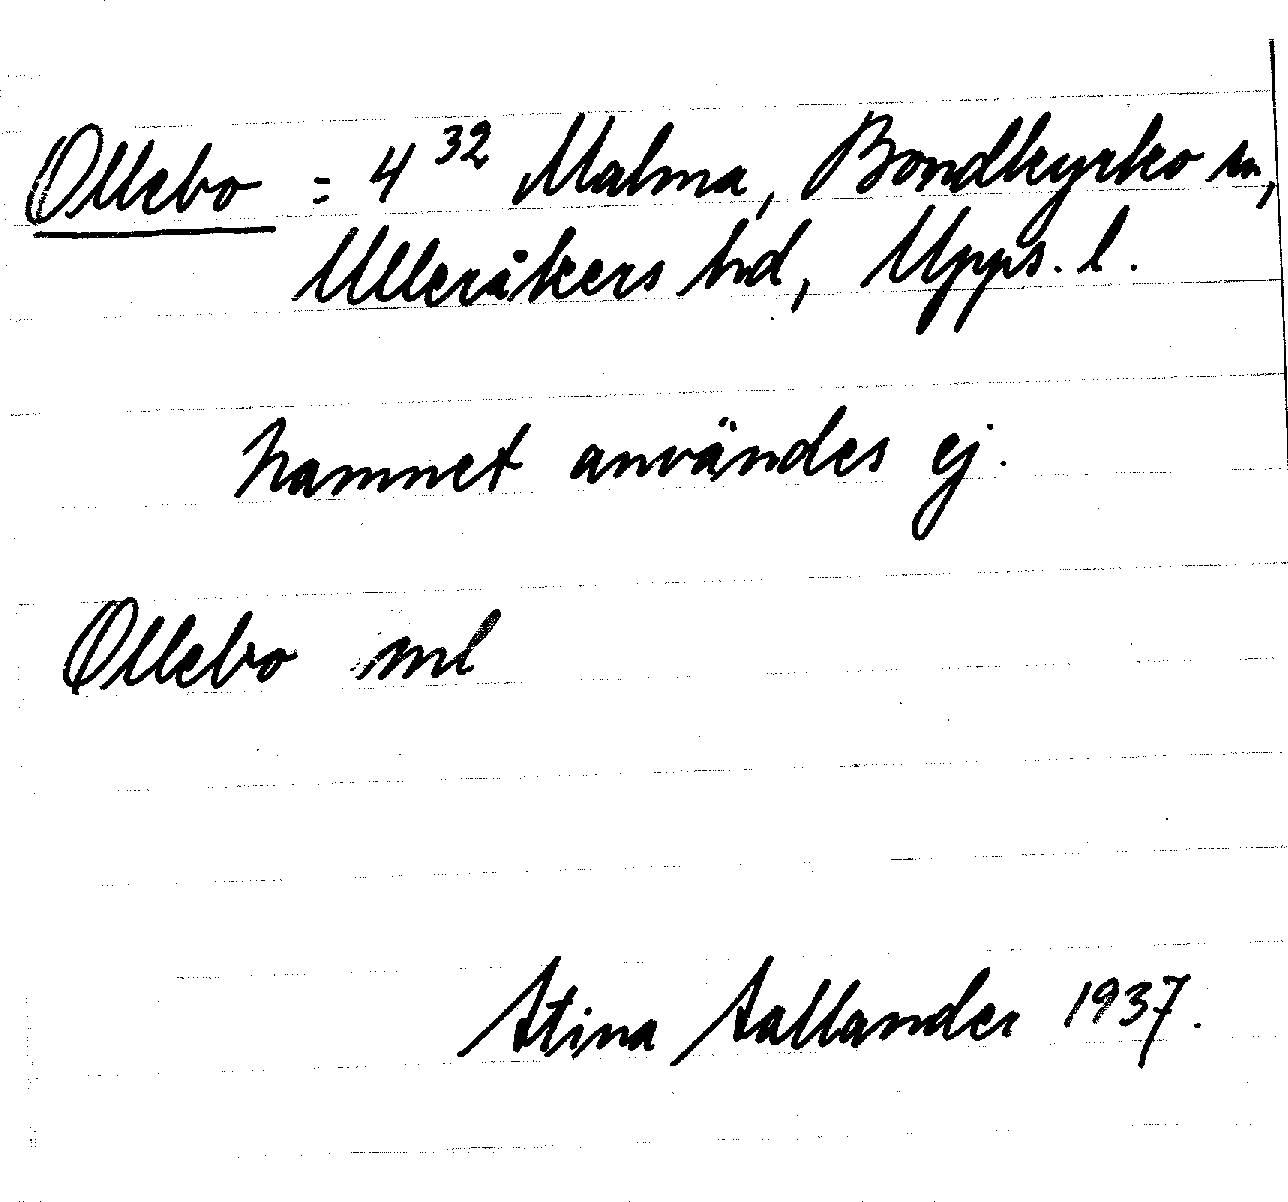 Ollebo = 4 32 Malma, Bondkyrko sn,
Ulleråkers hd, Upps. l.
Namnet användes ej.
Ollebo ml
Stina Sallander 1937.